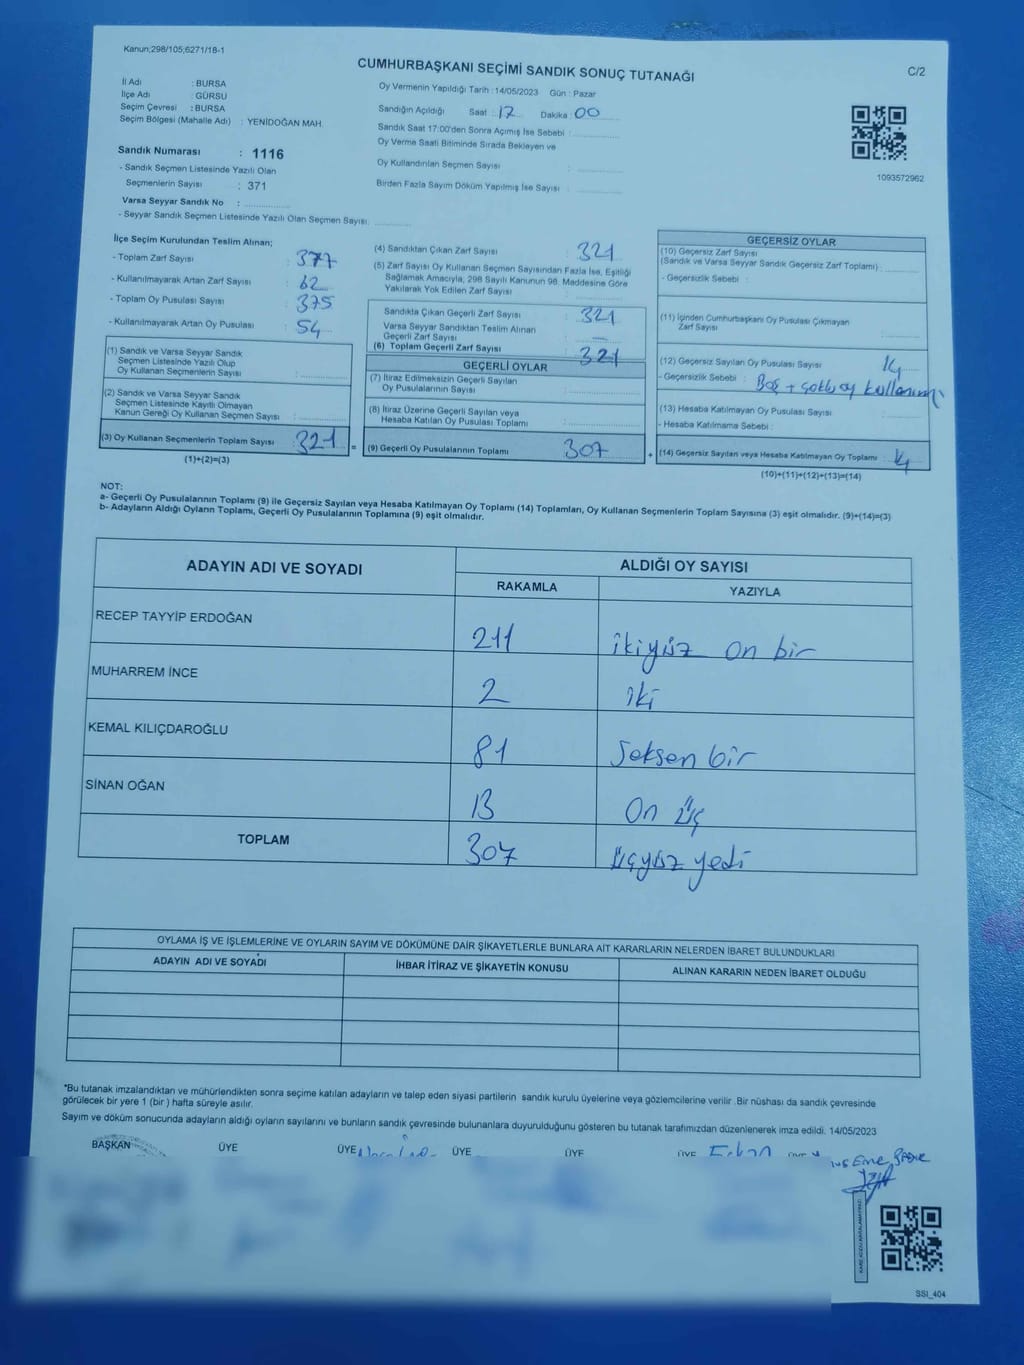 Kanun;298/105;6271/18-1
CUMHURBAŞKANI SEÇİMİ SANDIK SONUÇ TUTANAĞI
C/2
İl Adı : BURSA
İlçe Adı : GÜRSU
Seçim Çevresi : BURSA
Seçim Bölgesi (Mahalle Adı) : YENİDOĞAN MAH.
Sandık Numarası : 1116
- Sandık Seçmen Listesinde Yazılı Olan
Seçmenlerin Sayısı : 371
Varsa Seyyar Sandık No :
- Seyyar Sandık Seçmen Listesinde Yazılı Olan Seçmen Sayısı:
Oy Vermenin Yapıldığı Tarih :14/05/2023 Gün : Pazar
Sandığın Açıldığı Saat : 17 Dakika : 00
Sandık Saat 17:00'den Sonra Açımış İse Sebebi :
Oy Verme Saati Bitiminde Sırada Bekleyen ve
Oy Kullandırılan Seçmen Sayısı :
Birden Fazla Sayım Döküm Yapılmış İse Sayısı :
1093572962
İlçe Seçim Kurulundan Teslim Alınan;
- Toplam Zarf Sayısı : 377
- Kullanılmayarak Artan Zarf Sayısı : 62
- Toplam Oy Pusulası Sayısı : 375
- Kullanılmayarak Artan Oy Pusulası : 54
(1) Sandık ve Varsa Seyyar Sandık
Seçmen Listesinde Yazılı Olup
Oy Kullanan Seçmenlerin Sayısı :
(2) Sandık ve Varsa Seyyar Sandık
Seçmen Listesinde Kayıtlı Olmayan
Kanun Gereği Oy Kullanan Seçmen Sayısı :
(3) Oy Kullanan Seçmenlerin Toplam Sayısı : 321
(1)+(2)=(3)
(4) Sandıktan Çıkan Zarf Sayısı : 321
(5) Zarf Sayısı Oy Kullanan Seçmen Sayısından Fazla İse, Eşitliği
Sağlamak Amacıyla, 298 Sayılı Kanunun 98. Maddesine Göre
Yakılarak Yok Edilen Zarf Sayısı :
Sandıkta Çıkan Geçerli Zarf Sayısı : 321
Varsa Seyyar Sandıktan Teslim Alınan
Geçerli Zarf Sayısı : —
(6) Toplam Geçerli Zarf Sayısı : 321
GEÇERLİ OYLAR
(7) İtiraz Edilmeksizin Geçerli Sayılan
Oy Pusulalarının Sayısı :
(8) İtiraz Üzerine Geçerli Sayılan veya
Hesaba Katılan Oy Pusulası Toplamı :
= (9) Geçerli Oy Pusulalarının Toplamı : 307
GEÇERSİZ OYLAR
(10) Geçersiz Zarf Sayısı
(Sandık ve Varsa Seyyar Sandık Geçersiz Zarf Toplamı) :
- Geçersizlik Sebebi :
(11) İçinden Cumhurbaşkanı Oy Pusulası Çıkmayan
Zarf Sayısı :
(12) Geçersiz Sayılan Oy Pusulası Sayısı : 14
- Geçersizlik Sebebi : Boş + çoklu oy kullanımı
(13) Hesaba Katılmayan Oy Pusulası Sayısı :
- Hesaba Katılmama Sebebi :
+ (14) Geçersiz Sayılan veya Hesaba Katılmayan Oy Toplamı : 14
(10)+(11)+(12)+(13)=(14)
NOT:
a- Geçerli Oy Pusulalarının Toplamı (9) ile Geçersiz Sayılan veya Hesaba Katılmayan Oy Toplamı (14) Toplamları, Oy Kullanan Seçmenlerin Toplam Sayısına (3) eşit olmalıdır. (9)+(14)=(3)
b- Adayların Aldığı Oyların Toplamı, Geçerli Oy Pusulalarının Toplamına (9) eşit olmalıdır.
ADAYIN ADI VE SOYADI
ALDIĞI OY SAYISI
RAKAMLA YAZIYLA
RECEP TAYYİP ERDOĞAN 211 ikiyüz on bir
MUHARREM İNCE 2 iki
KEMAL KILIÇDAROĞLU 81 Seksen bir
SİNAN OĞAN 13 On üç
TOPLAM 307 üçyüz yedi
OYLAMA İŞ VE İŞLEMLERİNE VE OYLARIN SAYIM VE DÖKÜMÜNE DAİR ŞİKAYETLERLE BUNLARA AİT KARARLARIN NELERDEN İBARET BULUNDUKLARI
ADAYIN ADI VE SOYADI İHBAR İTİRAZ VE ŞİKAYETİN KONUSU ALINAN KARARIN NEDEN İBARET OLDUĞU
*Bu tutanak imzalandıktan ve mühürlendikten sonra seçime katılan adayların ve talep eden siyasi partilerin sandık kurulu üyelerine veya gözlemcilerine verilir .Bir nüshası da sandık çevresinde
görülecek bir yere 1 (bir ) hafta süreyle asılır.
Sayım ve döküm sonucunda adayların aldığı oyların sayılarını ve bunların sandık çevresinde bulunanlara duyurulduğunu gösteren bu tutanak tarafımızdan düzenlenerek imza edildi. 14/05/2023
BAŞKAN ÜYE ÜYE ÜYE ÜYE ÜYE
SSI_404